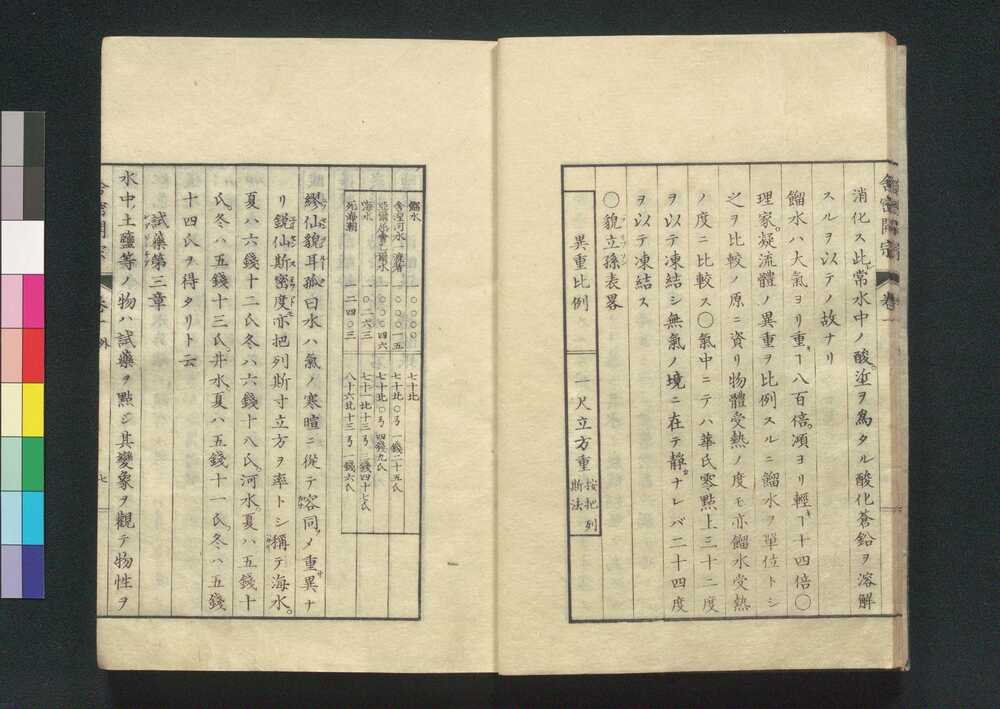 舎密開宗
卷一
消化ス此常水中ノ酸塗ヲ爲タル酸化蒼鉛ヲ溶解
スルヲ以テノ故ナリ
餾水ハ大氣ヨリ重ー八百倍澒ヨリ輕ー十四倍〇
理家凝流體ノ異重ヲ比例スルニ餾水ヲ單位トシ
之ヲ比較ノ原ニ資リ物體受熱ノ度モ亦餾水受熱
ノ度ニ比較ス〇氣中ニテハ華氏零點上三十二度
ヲ以テ凍結シ無氣ノ境ニ在テ靜ナレバ二十四度
ヲ以テ凍結ス
〇貌立孫表畧
異重比例
一尺立方重 按把列斯法
餾水 七十北
海水
死海潮 一二四〇三 八十六北十三ヲ 一錢六氏
繆仙貌耳孤曰水ハ氣ノ寒暄ニ從テ容同メ重異ナ
リ鋭仙斯密度亦把列斯寸立方ヲ率トシ稱テ海水
夏ハ六錢十二氏冬ハ六錢十八氏河水夏ハ五錢十
氏冬ハ五錢十三氏井水夏ハ五錢十一氏冬ハ五錢
十四氏ヲ得タリト云
試藥第三章
水中土鹽等ノ物ハ試藥ヲ點シ其變象ヲ觀テ物性ヲ
舎密開宗
卷一
七